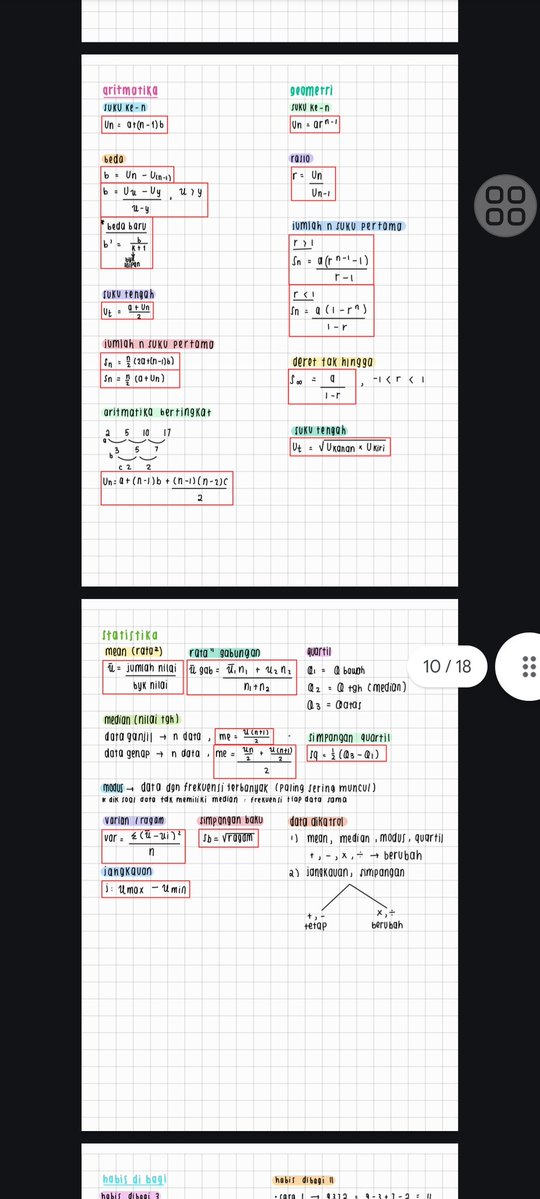 aritmatika
suku ke-n
Un = a+(n-1)b
beda
b = Un - U(n-1)
b = Uu - Uy / u-y , u > y
* beda baru
b' = b / k+1
byk
sisipan
suku tengah
Ut = a + Un / 2
jumlah n suku pertama
Sn = n/2 (2a+(n-1)b)
Sn = n/2 (a+Un)
aritmatika bertingkat
2 5 10 17
a
3 5 7
b
c 2 2
Un = a + (n-1)b + (n-1)(n-2)c / 2
geometri
suku ke-n
Un = ar^n-1
rasio
r = Un / Un-1
jumlah n suku pertama
r > 1
Sn = a(r^n-1 -1) / r-1
r < 1
Sn = a (1-r^n) / 1-r
deret tak hingga
S∞ = a / 1-r , -1 < r < 1
suku tengah
Ut = √Ukanan x Ukiri
statistika
mean (rata²)
ū = jumlah nilai / byk nilai
rata" gabungan
ū gab = ū₁n₁ + u₂n₂ / n₁+n₂
quartil
Q1 = Q bawah
Q2 = Q tgh (median)
Q3 = Q atas
10 / 18
median (nilai tgh)
data ganjil → n data , me = u(n+1) / 2
data genap → n data , me = un/2 + u(n+1)/2 / 2
simpangan quartil
Sq = ½ (Q3 - Q1)
modus → data dgn frekuensi terbanyak (paling sering muncul)
* dik soal data tdk memiliki median : frekuensi tiap data sama
varian / ragam
var = Σ(ū-ui)² / n
simpangan baku
Sb = √ragam
jangkauan
j : umax - umin
data dikatrol
1) mean, median, modus, quartil
+, -, x, ÷ → berubah
2) jangkauan, simpangan
+, - x, ÷
tetap berubah
habis di bagi
habis dibagi 3
habis dibagi 11